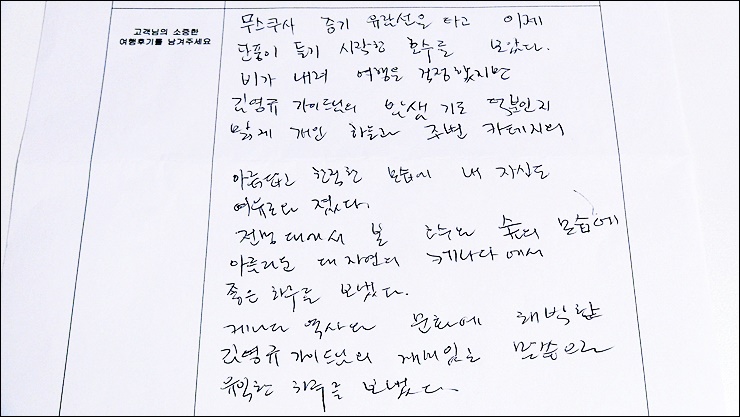 고객님의 소중한
여행후기를 남겨주세요
무스쿠사 증기 유람선을 타고 이제
단풍이 들기 시작한 호수를 보았다.
비가 내려 여행을 걱정했지만
김영규 가이드님의 밤샘 기도 덕분인지
맑게 개인 하늘과 주변 카테지의
아름답고 한적한 모습에 내 자신도
여유로와 졌다.
전망대에서 본 호수와 숲의 모습에
아름다운 대자연의 케나다에서
좋은 하루를 보냈다.
케나다 역사와 문화에 해박한
김영규 가이드님의 재미있는 말씀으로
유익한 하루를 보냈다.